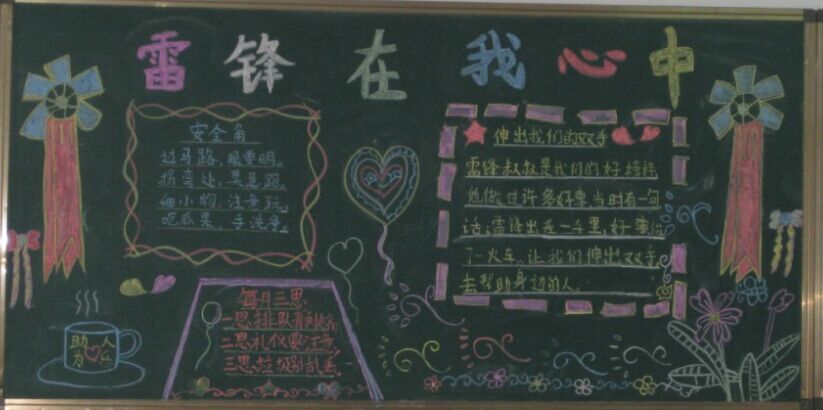 雷锋在我心中
安全角
过马路，眼要明。
拐弯处，莫急跑。
细小物，注意玩，
吃瓜果，手洗净。
伸出我们的双手
雷锋叔叔是我们的好榜样
他做过许多好事当时有一句
话：雷锋出差一千里，好事做
了一火车，让我们伸出双手
去帮助身边的人。
每月三思
一思排队有秩序
二思礼仪要注意
三思垃圾别乱丢
助人
为乐